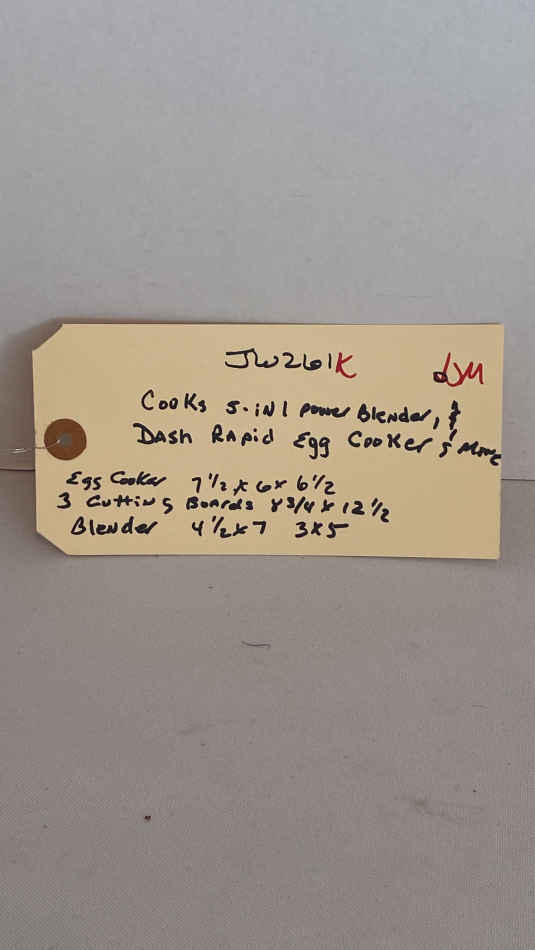 JW261K JM
Cooks 5-iN1 power Blender, &
DASH RApid Egg Cooker & More
Egg Cooker 7 1/2 x 6 x 6 1/2
3 Cutting Boards 8 3/4 x 12 1/2
Blender 4 1/2 x 7 3x5